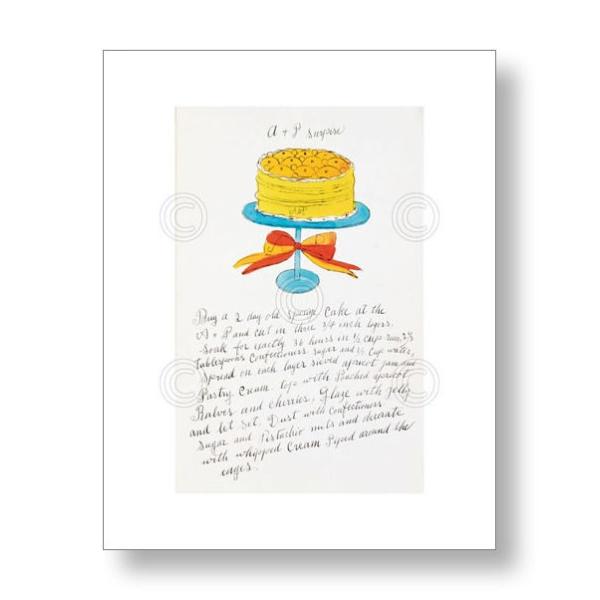 A + P Surprise
Buy a 2 day old sponge Cake at the
A + P and cut in three 3/4 inch layers.
Soak for exactly 36 hours in ½ cup rum, 2
tablespoons Confectioners sugar and ½ Cup water,
Spread on each layer sieved apricot jam and
Pastry Cream top with Poached apricot
Halves and cherries, Glaze with jelly
and let set. Dust with confectioners
Sugar and Pistachio nuts and decorate
with whipped Cream Piped around the
edges.